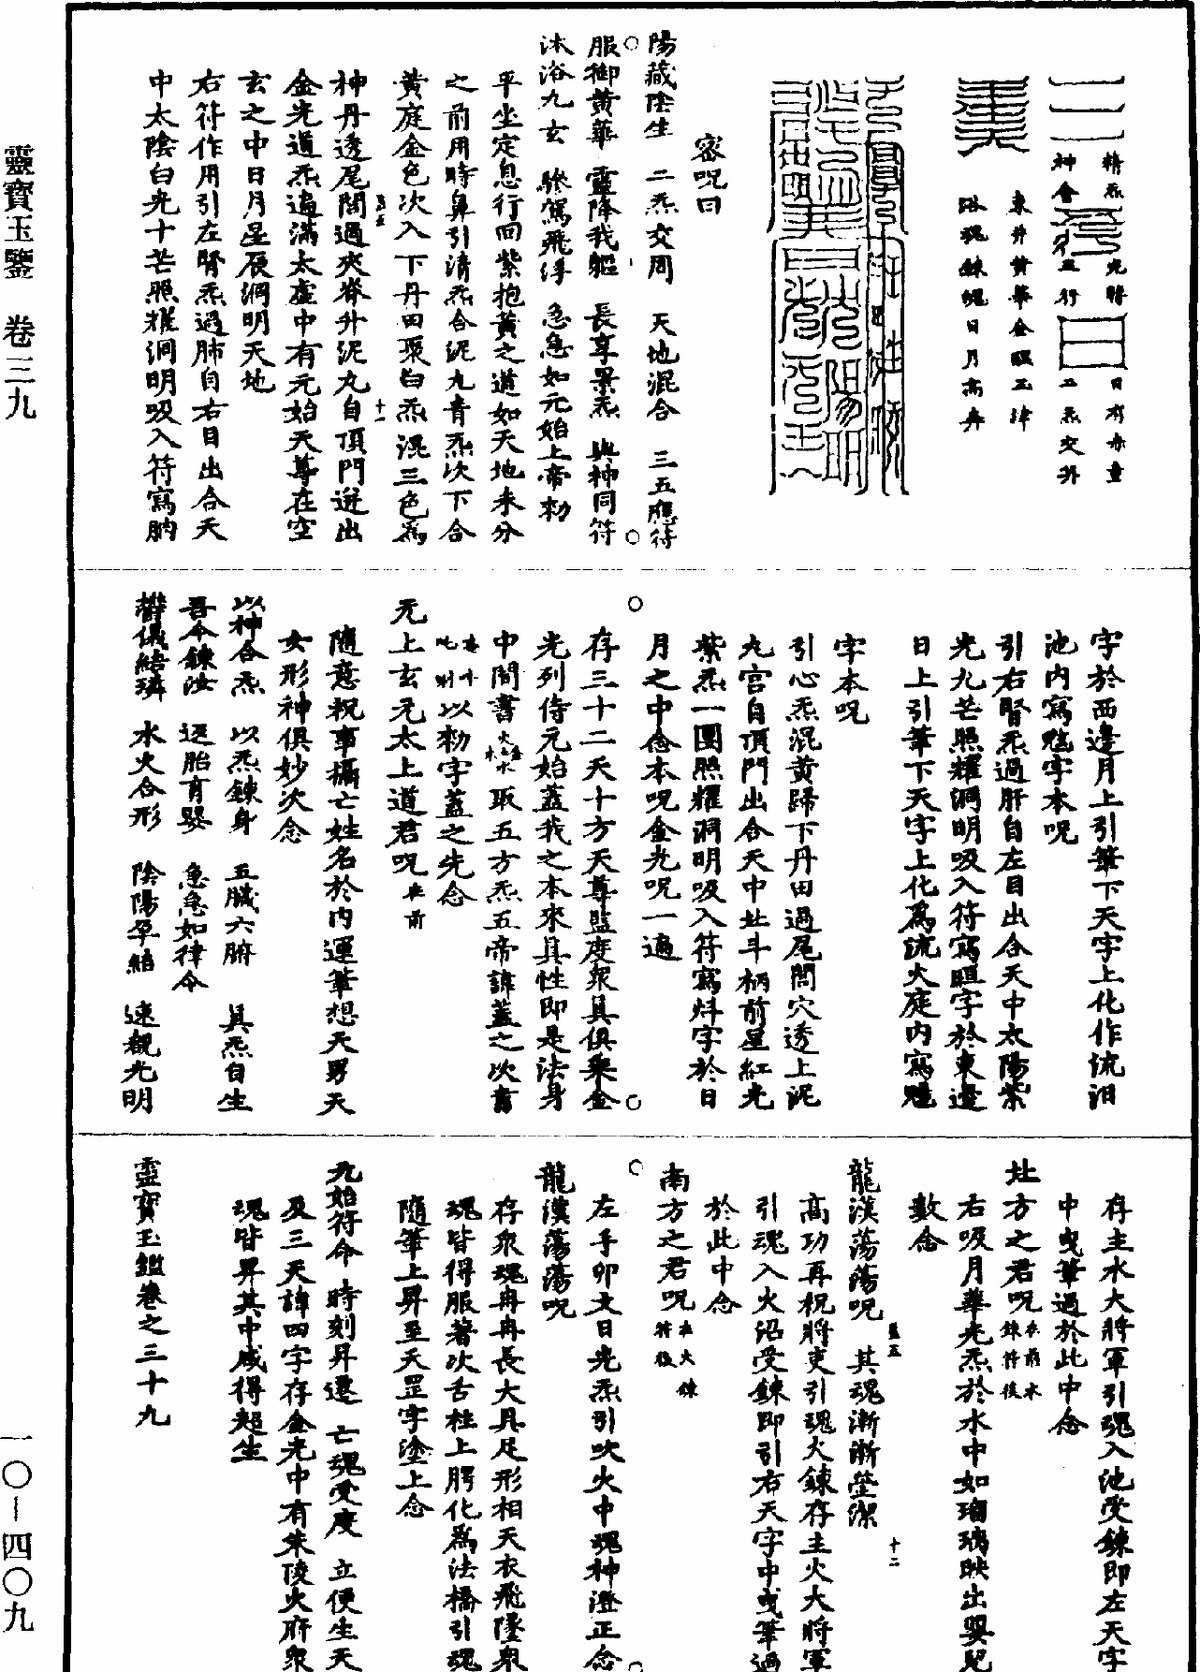 靈寶玉鑒 卷三九
一〇—四〇九
精炁
神會
光階
五行
日有赤童
二炁交并
東井黃華金暉玉津
浴魂鍊魄日月高奔
密呪曰
陽藏陰生 二炁交周 天地混合 三五應符
服御黃華 靈降我軀 長享景炁 與神同符
沐浴九玄 驂駕飛浮 急急如元始上帝勑
平坐定息行回紫抱黃之道如天地未分
之前用時鼻引清炁合泥九青炁次下合
黃庭金色次入下丹田聚白炁混三色為
神丹透尾閭過夾脊升泥九自頂門迸出
金光道炁遍滿太虛中有元始天尊在空
玄之中日月星辰洞明天地
右符作用引左腎炁過肺自右目出合天
中太陰白光十芒照耀洞明吸入符寫肭
字於西邊月上引筆下天字上化作流汨
池內寫魓字本呪
引右腎炁過肝自左目出合天中太陽紫
光九芒照耀洞明吸入符寫暄字於東邊
日上引筆下天字上化為流火庭內寫魒
字本呪
引心炁混黃歸下丹田過尾閭穴透上泥
九宮自頂門出合天中北斗柄前星紅光
紫炁一團照耀洞明吸入符寫炓字於日
月之中念本呪金光呪一遍
存三十二天十方天尊監度眾具俱乘金
光列侍元始蓋我之本來真性即是法身
中間書 取五方炁五帝諱蓋之次書
以勑字蓋之先念
无上玄元太上道君呪在前
隨意祝事攝亡姓名於內運筆想天男天
女形神俱妙次念
以神合炁 以炁鍊身 五臟六腑 真炁自生
吾今鍊汝 返胎育嬰 急急如律令
欎儀結璘 水火合形 陰陽孕結 速覩光明
存主水大將軍引魂入池受鍊即左天字
中曳筆過於此中念
北方之君呪在前水鍊符後
右吸月華光炁於水中如瑠璃映出嬰兒
數念
龍漢蕩蕩呪 其魂漸漸瑩潔
高功再祝將吏引魂火鍊存主火大將軍
引魂入火沼受鍊即引右天字中曳筆過
於此中念
南方之君呪在火鍊符後
左手卯文日光炁引吹火中魂神澄正念
龍漢蕩蕩呪
存眾魂冉冉長大具足形相天衣飛墜眾
魂皆得服著次舌柱上腭化為法橋引魂
隨筆上昇至天罡字塗上念
元始符命 時刻昇遷 亡魂受度 立便生天
及三天諱四字存金光中有朱陵火府眾
魂皆昇其中咸得超生
靈寶玉鑑卷之三十九